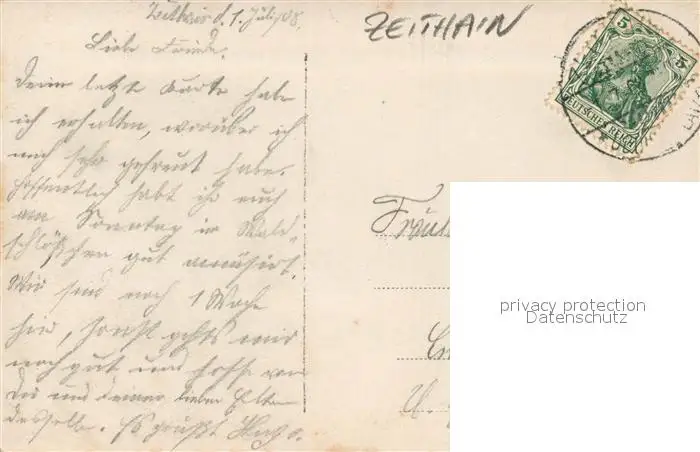 Zeithain d. 1. Juli 08.
ZEITHAIN
Liebe Frieda.
Deine letzte Karte habe
ich erhalten, worüber ich
mich sehr gefreut habe.
Hoffentlich habt ihr euch
am Sonntag im Wald-
schlößchen gut amüsirt.
Wir sind noch 1 Woche
hier, sonst gehts mir
noch gut und hoffe von
Dir und deinen lieben Eltern
dasselbe. Es grüßt
5 5
DEUTSCHES REICH
Fräul
privacy protection
Datenschutz